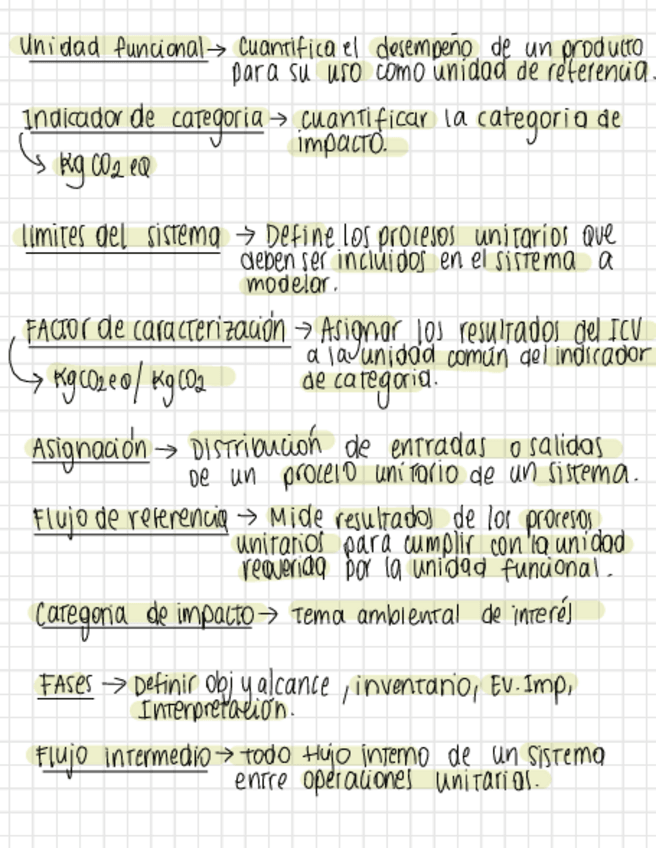 Unidad funcional → Cuantifica el desempeño de un producto
para su uso como unidad de referencia.
Indicador de categoria → cuantificar la categoria de
impacto.
↳ Kg CO2 eq
limites del sistema → Define los procesos unitarios que
deben ser incluidos en el sistema a
modelar.
Factor de caracterización → Asignar los resultados del ICV
a la unidad común del indicador
↳ KgCO2eq/KgCO2 de categoria.
Asignación → Distribución de entradas o salidas
De un proceso unitario de un sistema.
Flujo de referencia → Mide resultados de los procesos
unitarios para cumplir con la unidad
requerida por la unidad funcional.
Categoria de impacto → Tema ambiental de interés
FAses → Definir obj y alcance, inventario, Ev. Imp,
Interpretación.
Flujo intermedio → todo flujo interno de un sistema
entre operaciones unitarias.